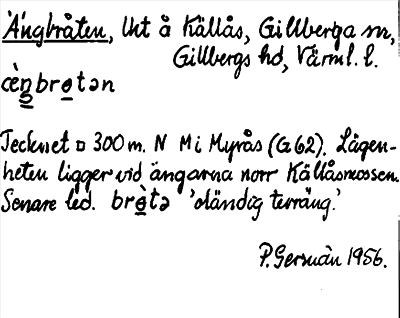 Ängbråten, lht å Källås, Gillberga sn,
Gillbergs hd, Värml. l.
cèŋbrọtən
Tecknet ¤ 300 m. N M i Myrås (G 62). Lägen-
heten ligger vid ängarna norr Källåsmossen.
Senare led. brọ̀tə 'oländig terräng.'
P. Germàn 1956.